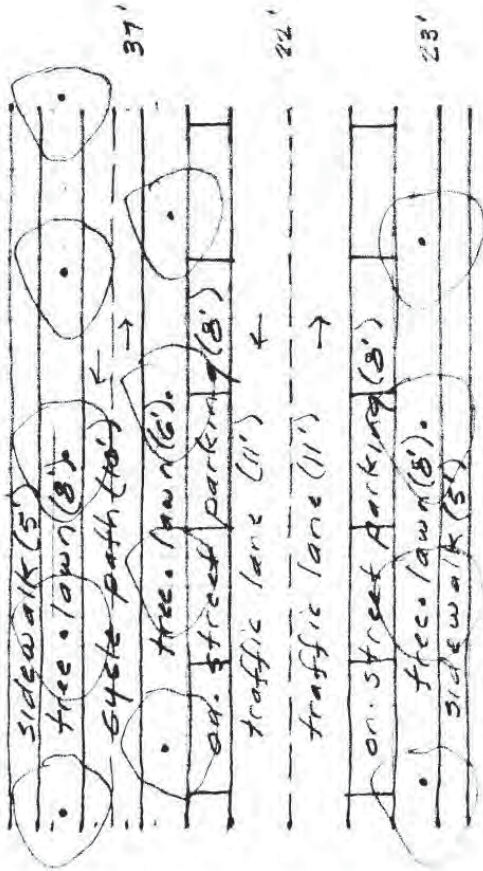 sidewalk (5')
tree.lawn (8').
cycle path (10')
tree.lawn (6').
on.street parking (8')
traffic lane (11')
traffic lane (11')
on.street parking (8')
tree.lawn (8').
sidewalk (5')
37'
22'
23'